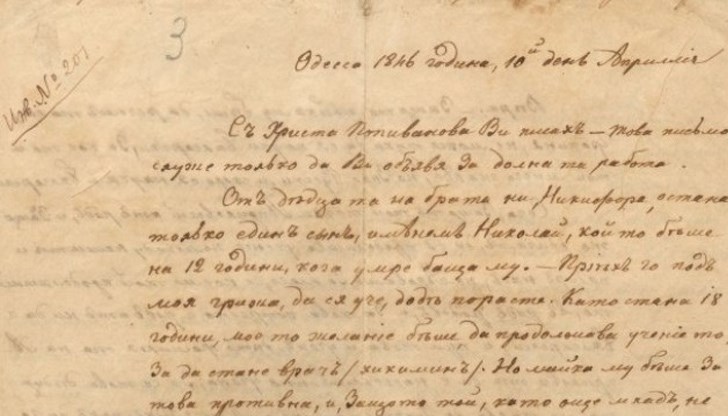 3
Инв. № 201
Одесса 1846 година, 10й день Априлліе
Съ Христа Ппиванова Ви писахъ — това письмо
служе только да Ви объявя за долна та работа.
Отъ дѣтца та на брата ни Никифора, остана
только единъ сынъ, именемъ Николай, кой то бѣше
на 12 години, кога умре баща му. — Пріѣхъ го подъ
моя грижа, да ся уче, додѣ порасте. Като стана 18
години, мое то желаніе бѣше да продолжава ученіе то,
за да стане врачъ /хикиминъ/. Но майка му бѣше за
това противна, и, защото той, като още младъ, не